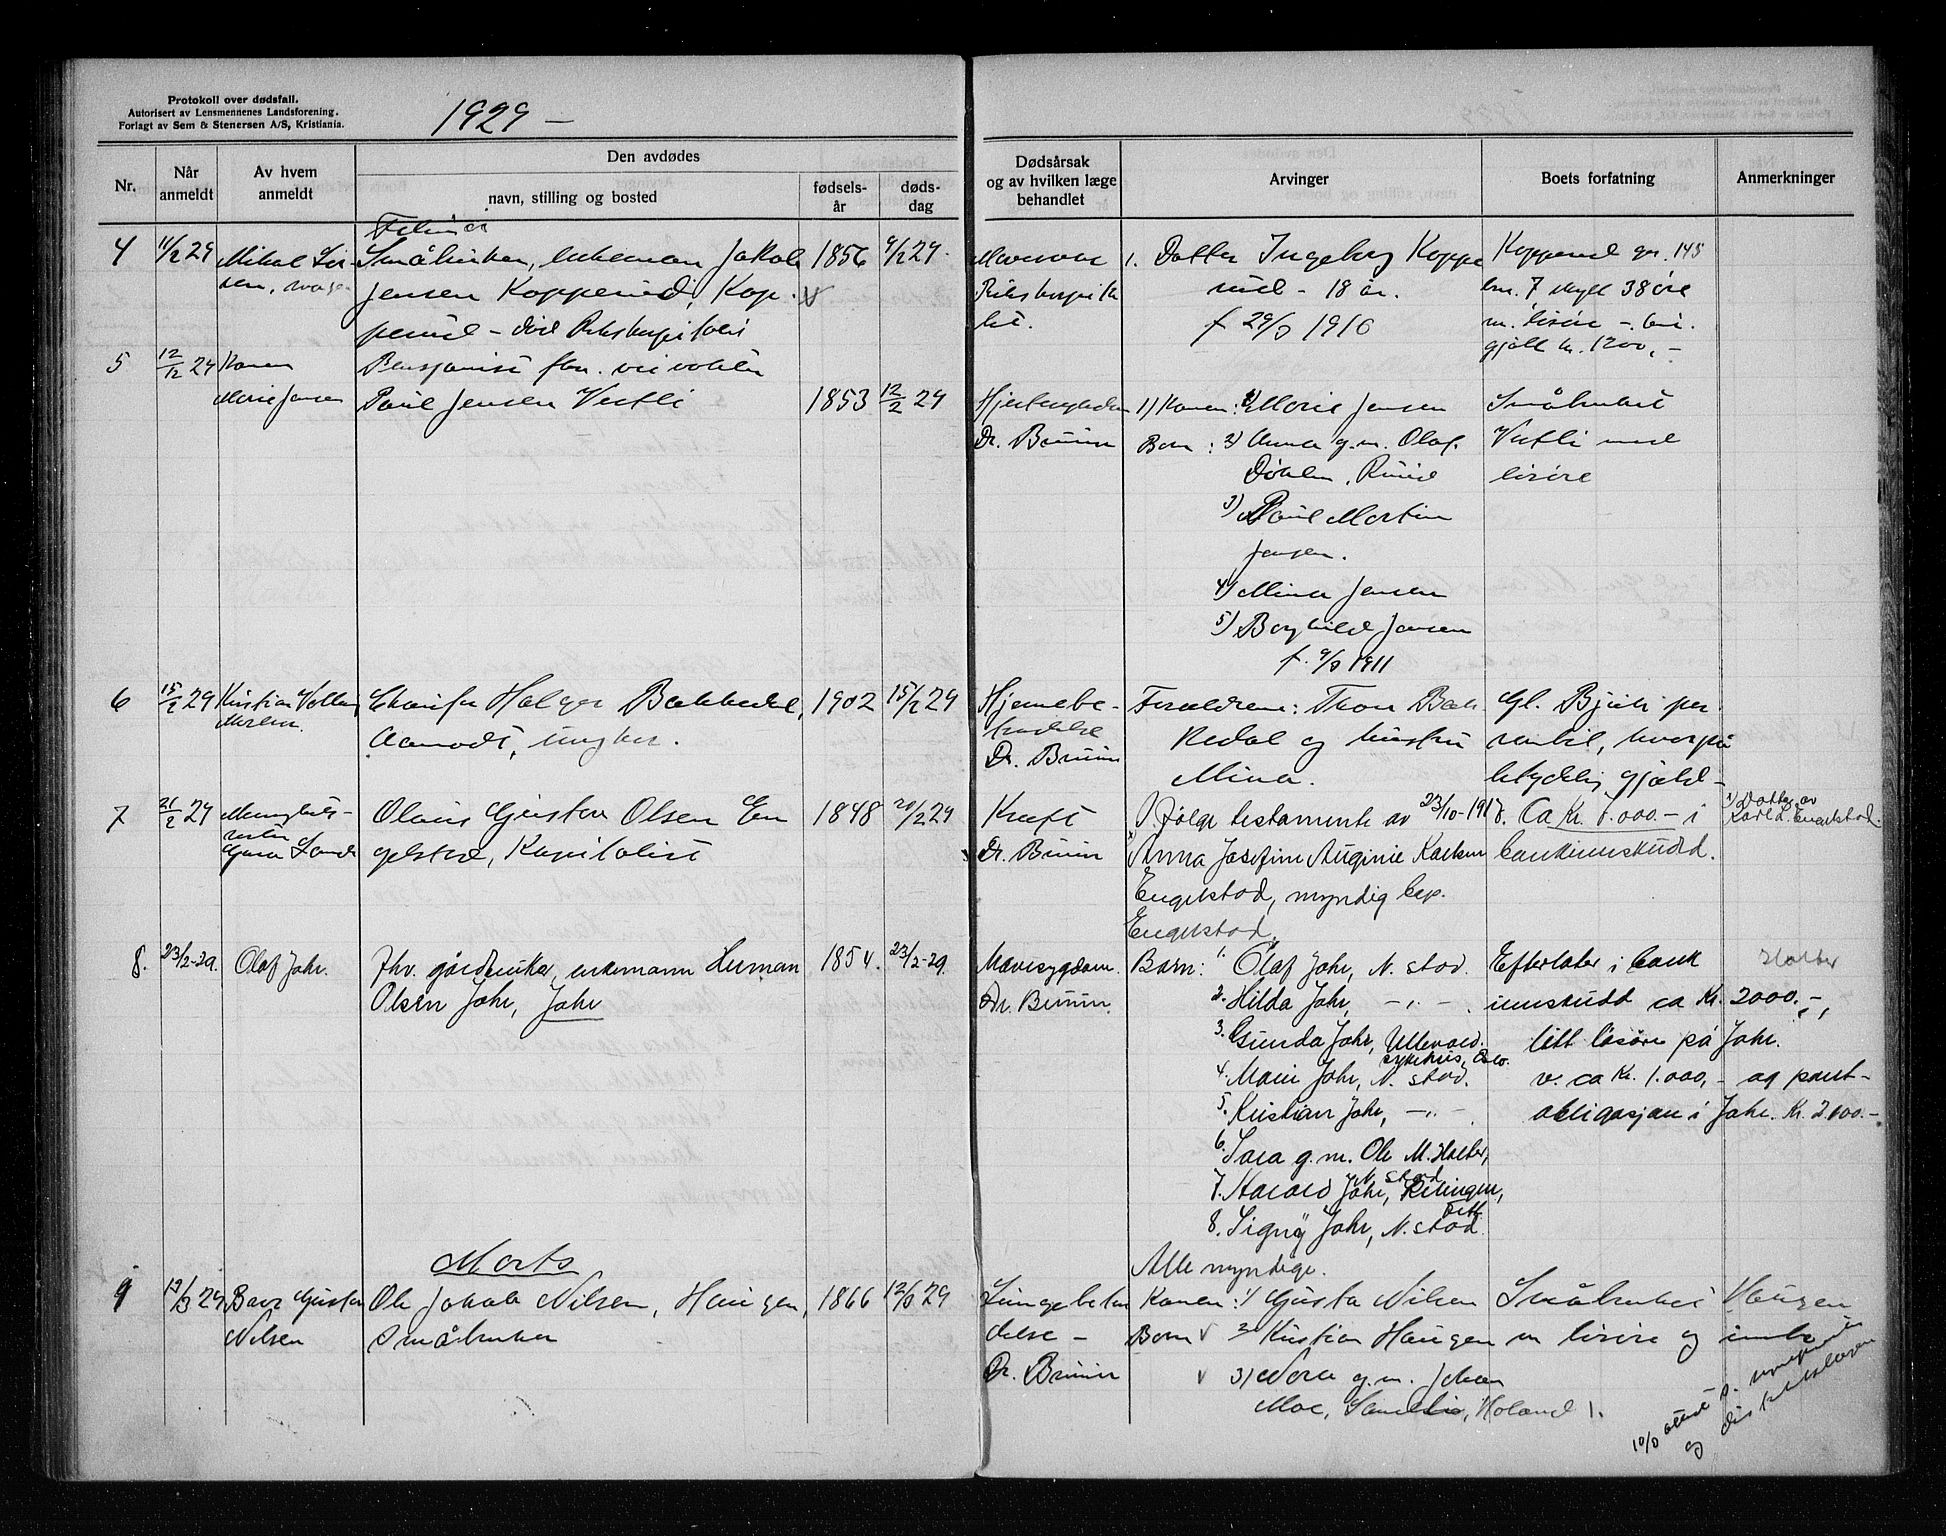 Protokoll over dødsfall.
Autorisert av Lensmennenes Landsforening.
Forlagt av Sem & Stenersen A/S, Kristiania.
1929 —
Nr.
Når anmeldt
Av hvem anmeldt
Den avdødes
navn, stilling og bosted
fødsels-år
døds-dag
Dødsårsak og av hvilken læge behandlet
Arvinger
Boets forfatning
Anmerkninger
4
11/2 29
Småbruker, enkeman Jakob
Jensen Kopperud, Kop-
perud – død Rikshospitalet
1856
9/2 29
Rikshospita
let.
1. Datter Ingeborg Koppe
rud – 18 år.
f 29/9 1910
Kopperud gnr. 145
bnr. 7 skyld 38 øre
m. løsøre –
gjæld kr. 1200,–
5
12/2 29
Karen
Marie Jensen
Paul Jensen Vestli
1853
12/2 29
Dr. Bruun
1) Konen: Marie Jensen
Barn: 2) Anna g.m. Olaf
3) Paul Martin
Jensen.
4) Mina Jensen
5) Borghild Jensen
f. 9/9 1911
Småbruket
Vestli med
løsøre
6
15/2 29
Kristian
Chauffør Holger Bakkedal,
Aamodt, ungkar.
1902
15/2 29
Hjernebe-
tændelse
Dr. Bruun
Forældrene: Thor Bak
kedal og hustru
Mina.
Gl. Bjøli per
sonbil, hvorpå
betydelig gjæld –
7
21/2 29
Olaus Gustav Olsen En
gelstad, Kapitalist
1848
20/2 29
Kreft
Dr. Bruun
I følge testamente av 23/10-1917
Anna Josefine Auginie Karlsen
Engelstad, myndig
Engelstad.
Ca Kr. 8.000.– i
bankinnskudd.
1) Datter av
Karl L. Engelstad.
8.
23/2-29.
Olaf Jahr.
Fhv. gårdbruker, enkemann Herman
Olsen Jahr, Jahr
1854.
23/2-29.
Mavesygdom.
Dr. Bruun.
Barn: 1. Olaf Jahr, N. stad.
2. Hilda Jahr, –"–
3. Gunda Jahr, Ullevaal
sykehus, Oslo.
4. Marie Jahr, N. stad.
5. Kristian Jahr, –"–
6. Sara g.m. Ole M. Halter,
N. stad
7. Harald Jahr,
8. Signy Jahr, N. stad
Alle myndige.
Efterlater i bank
innskudd ca Kr. 2000.–,
litt løsøre på Jahr.
v. ca Kr. 1.000,– og pant-
obligasjon i Jahr. Kr. 2.000.–
Halter
Marts
9
12/3 29
Gustav
Nilsen
Ole Jakob Nilsen, Haugen,
Småbruker
1866
12/3 29
Lungebetæn
delse –
Dr. Bruun
Konen: 1) Gusta Nilsen
Barn 2) Kristian Haugen
3) Nora g.m. Johan
Moe, Høland.
Småbruket Haugen
m løsøre og innbo